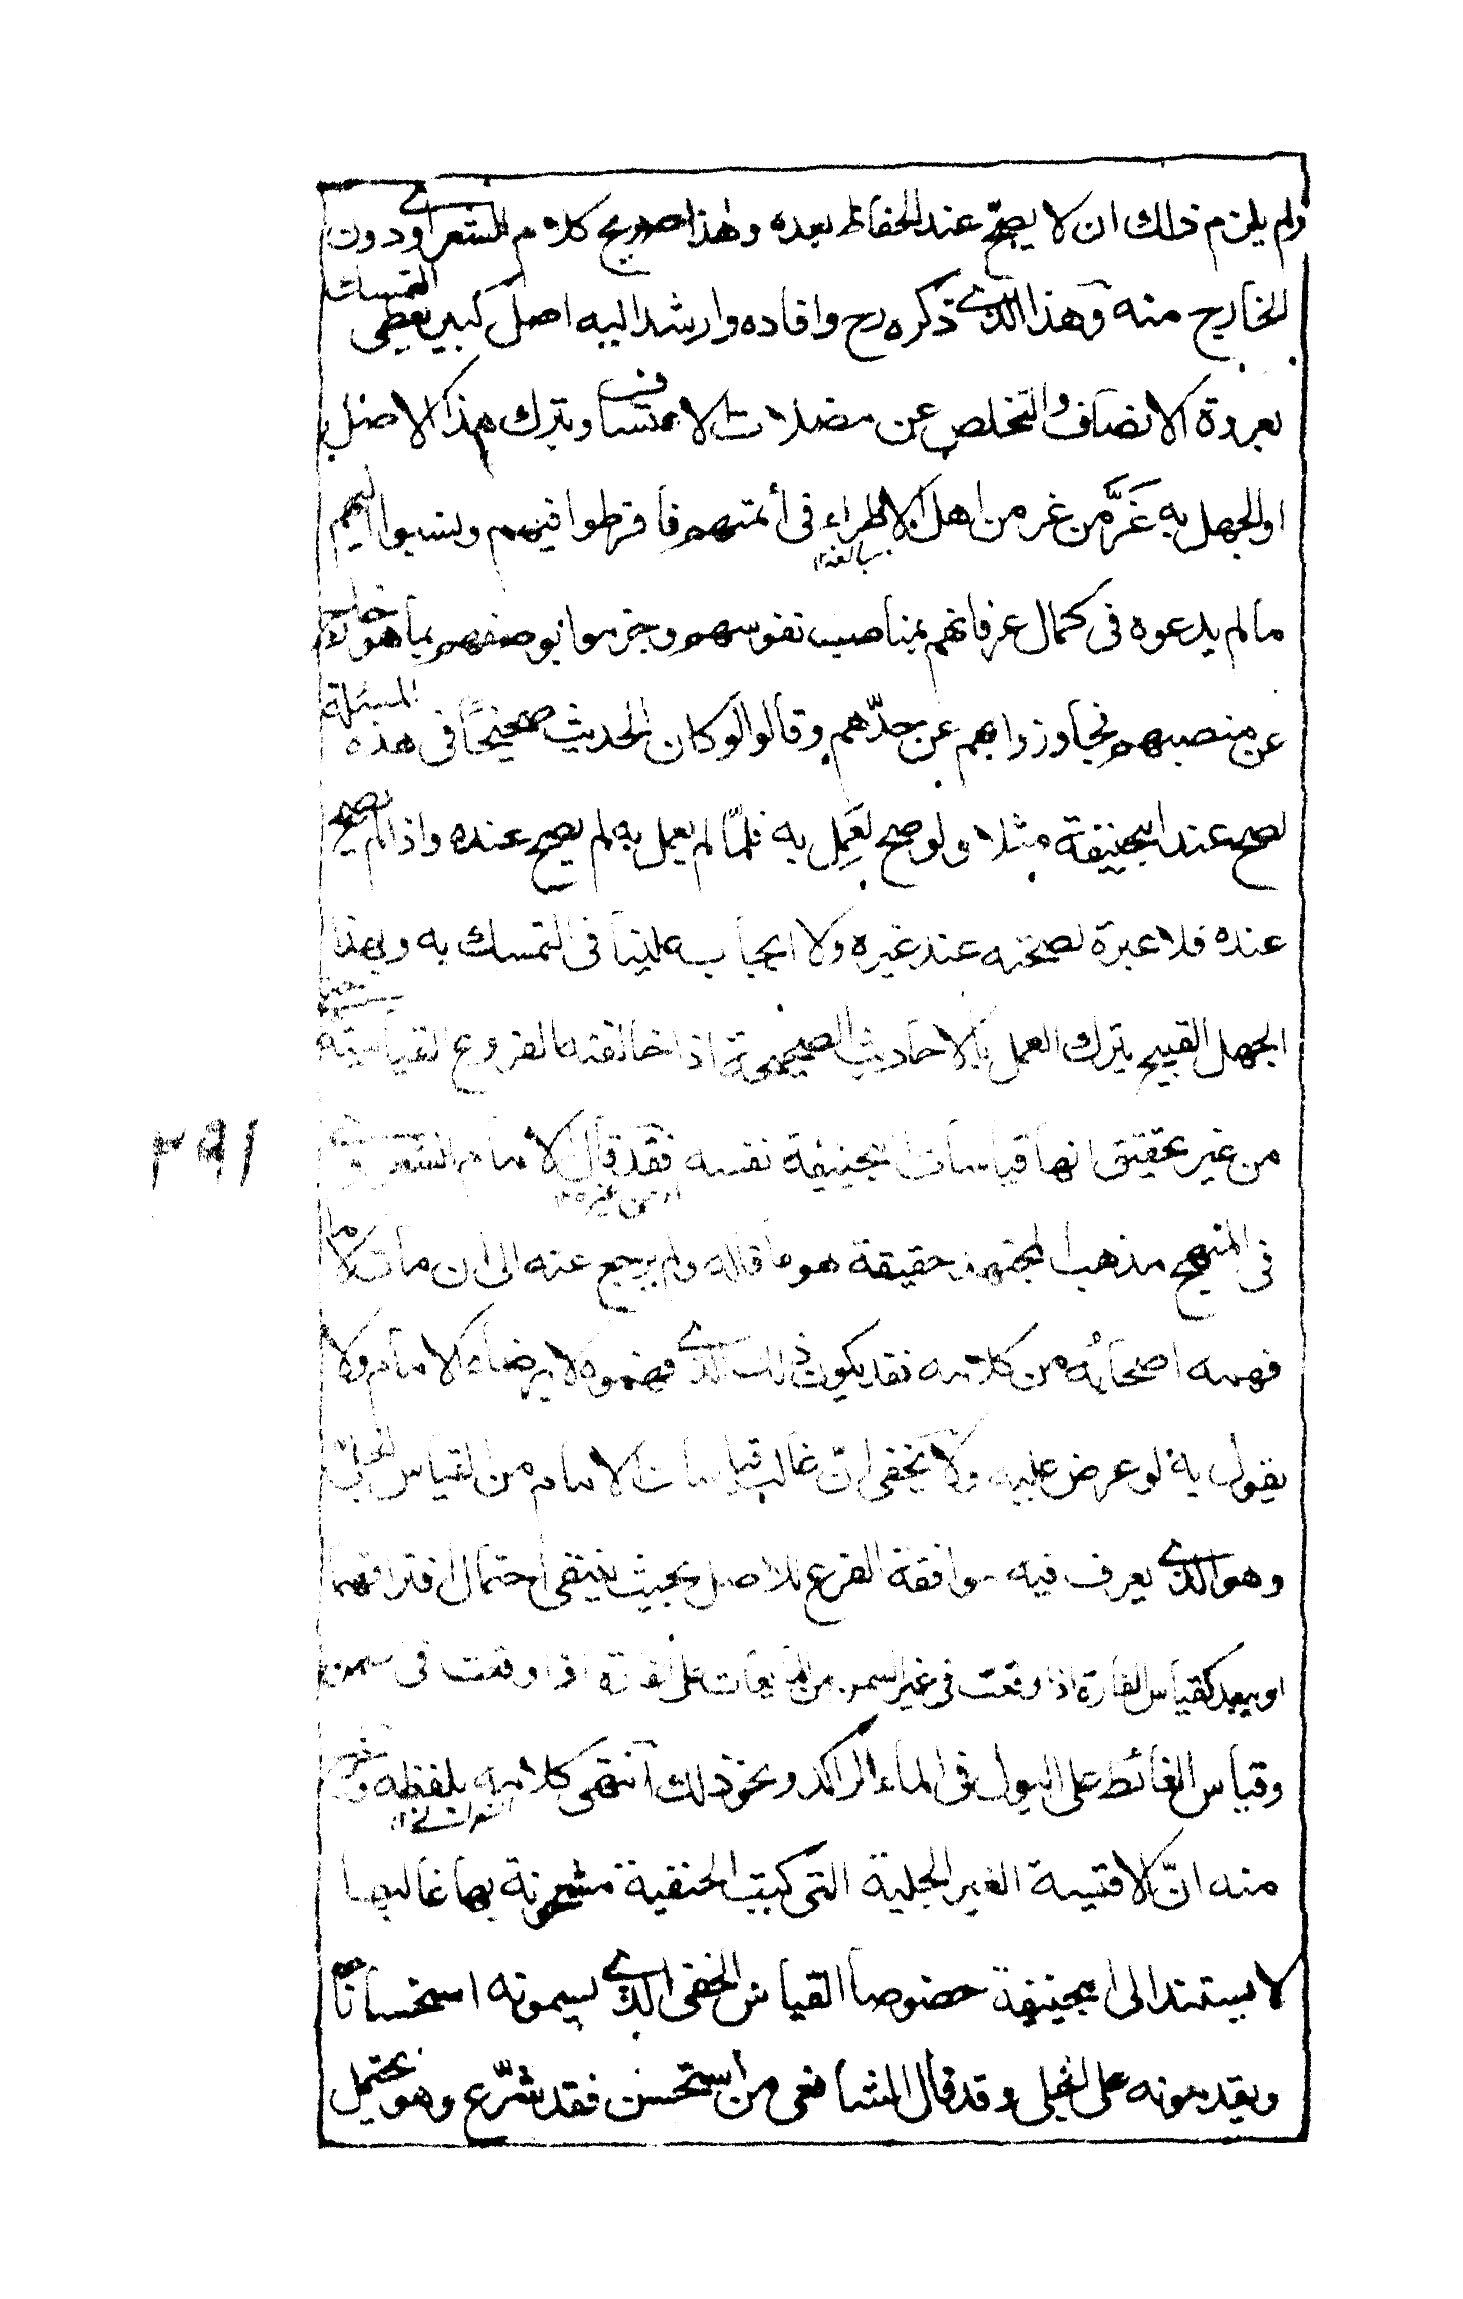 ولم يلزم ذلك ان لا يصحّ عند الحفاظ بعده وهذا صريح كلام الشعراوى دون
الخارج منه وهذا الذى ذكره رح وافاده وارشد اليه اصل كبير يعطى التمسك
بعروة الانصاف والتخلص عن مضلات الاعتساف وبترك هذا الاصل
او الجهل به غَرَّ من غر من اهل الاطراء فى أئمتهم فافرطوا فيهم ونسبوا اليهم
مبالغة ١٢
ما لم يدعوه فى كمال عرفانهم بمناصب نفوسهم وجزموا بوصفهم بما هو خارج
عن منصبهم فجاوزوا بهم عن حدّهم وقالوا لو كان الحديث صحيحًا فى هذه المسئلة
لصح عند ابيحنيفة مثلا ولو صح لعَمِل به فلمّا لم يعمل به لم يصح عنده واذا لم يصح
عنده فلا عبرة لصحته عند غيره ولا ايجاب علينا فى التمسك به وبهذا
الجهل القبيح يترك العمل بالاحاديث الصحيحة اذا خالفته الفروع القياسية
من غير تحقيق انها قياسات ابيحنيفة نفسه فقد قال الامام الشعراوى
او من غيره ١٢
فى المنهج مذهب المجتهد حقيقة هو ما قاله ولم يرجع عنه الى ان مات لا ما
فهمه اصحابُه من كلامه فقد يكون ذلك الذى فهموه لا يرضاه الامام ولا
يقول به لو عرض عليه ولا يخفى انّ غالب قياسات الامام من القياس الجلىّ
وهو الذى يعرف فيه موافقة الفرع للاصل بحيث ينتفى احتمال افتراقهما
او يبعد كقياس الفارة اذا وقعت فى غير السمن من المائعات على الفارة اذا وقعت فى سمن
وقياس الغائط على البول فى الماء الراكد ونحو ذلك انتهى كلامه بلفظه
الشعراوى ١٢
منه انّ الاقيسة الغير الجلية التى كتب الحنفية مشحونة بها غالبها
لا يستند الى ابيحنيفة خصوصا القياس الخفى الذى يسمونه استحسانًا
ويقدمونه على الجلى وقد قال الشافعى من استحسن فقد شرّع وهو يحتمل
٢٩١